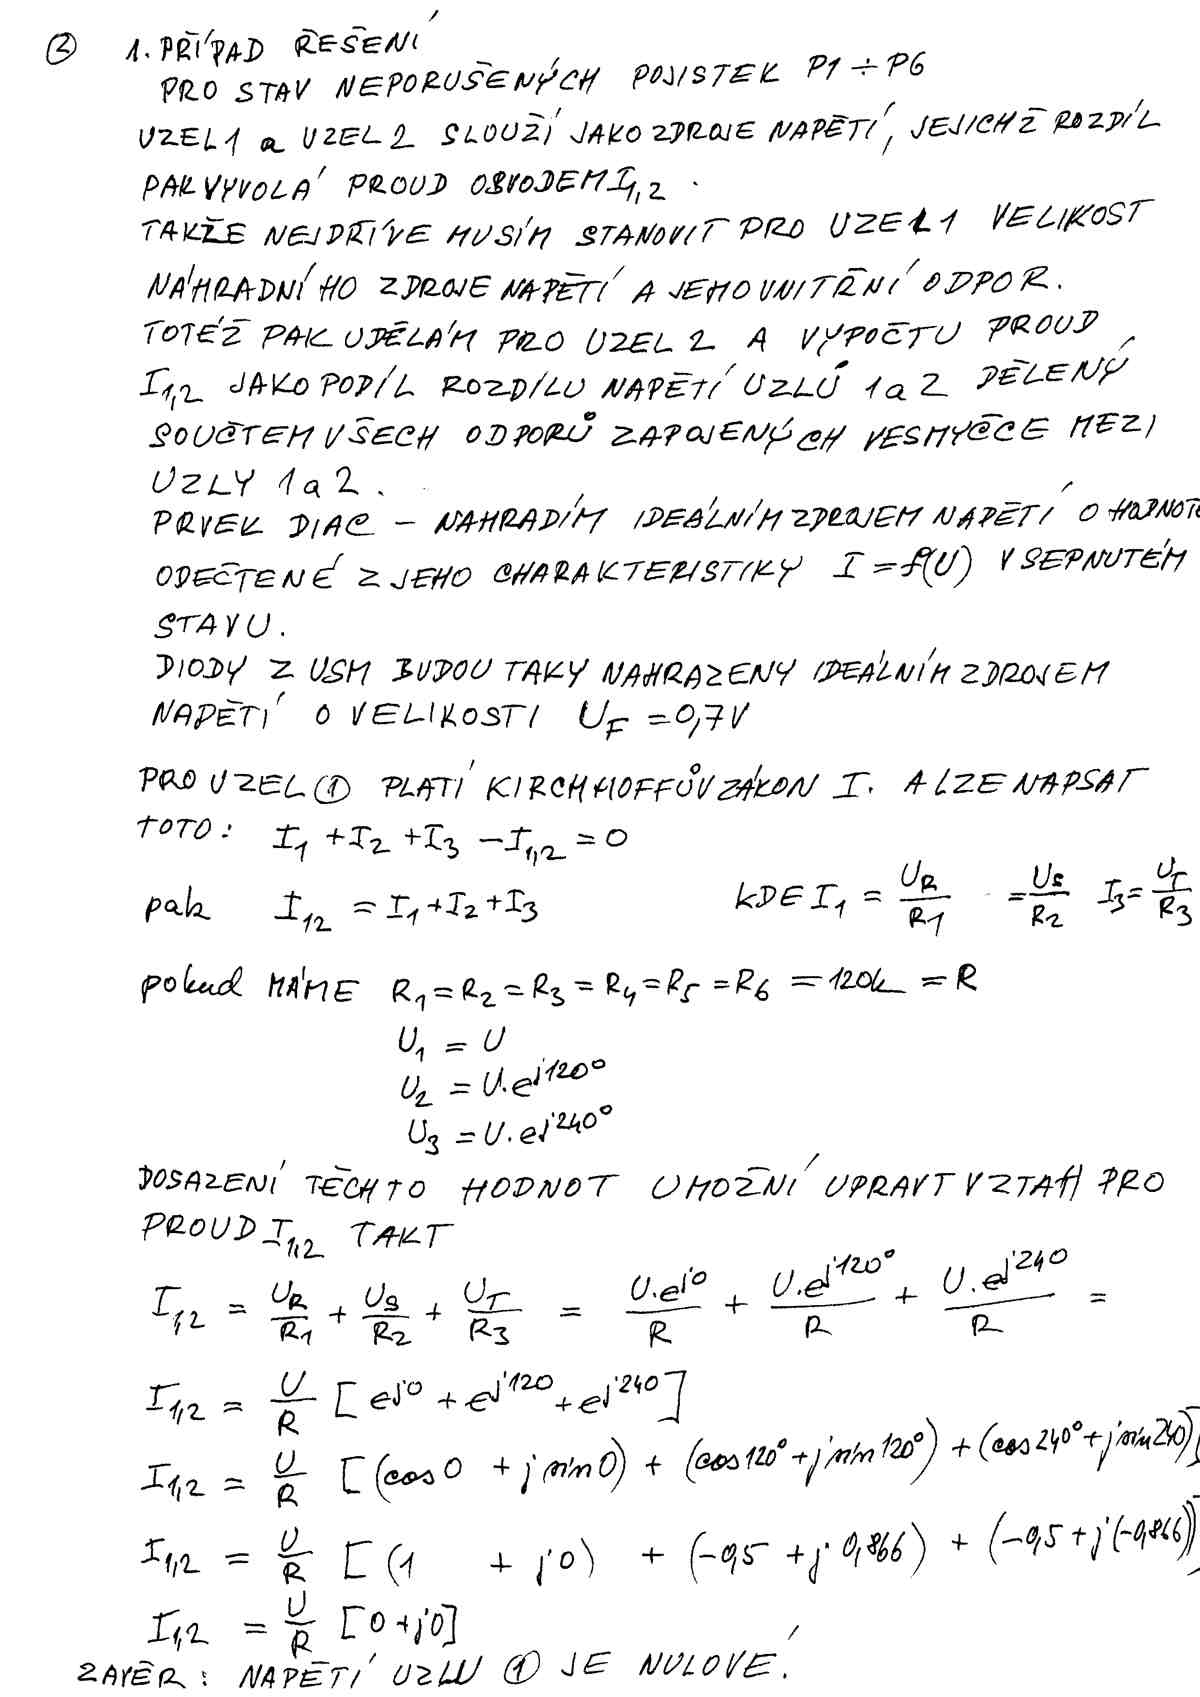 ② 1. PŘÍPAD ŘEŠENÍ
PRO STAV NEPORUŠENÝCH POJISTEK P1 ÷ P6
UZEL 1 a UZEL 2 SLOUŽÍ JAKO ZDROJE NAPĚTÍ, JEJICHŽ ROZDÍL
PAK VYVOLÁ PROUD OBVODEM I1,2.
TAKŽE NEJDŘÍVE MUSÍM STANOVIT PRO UZEL 1 VELIKOST
NÁHRADNÍHO ZDROJE NAPĚTÍ A JEHO VNITŘNÍ ODPOR.
TOTÉŽ PAK UDĚLÁM PRO UZEL 2 A VYPOČTU PROUD
I1,2 JAKO PODÍL ROZDÍLU NAPĚTÍ UZLŮ 1 a 2 DĚLENÝ
SOUČTEM VŠECH ODPORŮ ZAPOJENÝCH VE SMYČCE MEZI
UZLY 1 a 2.
PRVEK DIAC – NAHRADÍM IDEÁLNÍM ZDROJEM NAPĚTÍ O HODNOTĚ
ODEČTENÉ Z JEHO CHARAKTERISTIKY I = f(U) V SEPNUTÉM
STAVU.
DIODY Z USM BUDOU TAKY NAHRAZENY IDEÁLNÍM ZDROJEM
NAPĚTÍ O VELIKOSTI UF = 0,7V
PRO UZEL ① PLATÍ KIRCHHOFFŮV ZÁKON I. A LZE NAPSAT
TOTO: I1 + I2 + I3 – I1,2 = 0
pak I12 = I1 + I2 + I3 KDE I1 = UR/R1 = US/R2 I3 = UT/R3
pokud MÁME R1 = R2 = R3 = R4 = R5 = R6 = 120k = R
U1 = U
U2 = U.e^j120°
U3 = U.e^j240°
DOSAZENÍ TĚCHTO HODNOT UMOŽNÍ UPRAVT VZTAH PRO
PROUD I1,2 TAKT
I1,2 = UR/R1 + US/R2 + UT/R3 = U.e^j0/R + U.e^j120°/R + U.e^j240/R =
I1,2 = U/R [e^j0 + e^j120 + e^j240]
I1,2 = U/R [(cos 0 + j sin 0) + (cos 120° + j sin 120°) + (cos 240° + j sin 240)]
I1,2 = U/R [(1 + j0) + (-0,5 + j 0,866) + (-0,5 + j(-0,866))]
I1,2 = U/R [0 + j0]
ZAVĚR: NAPĚTÍ UZLU ① JE NULOVÉ!